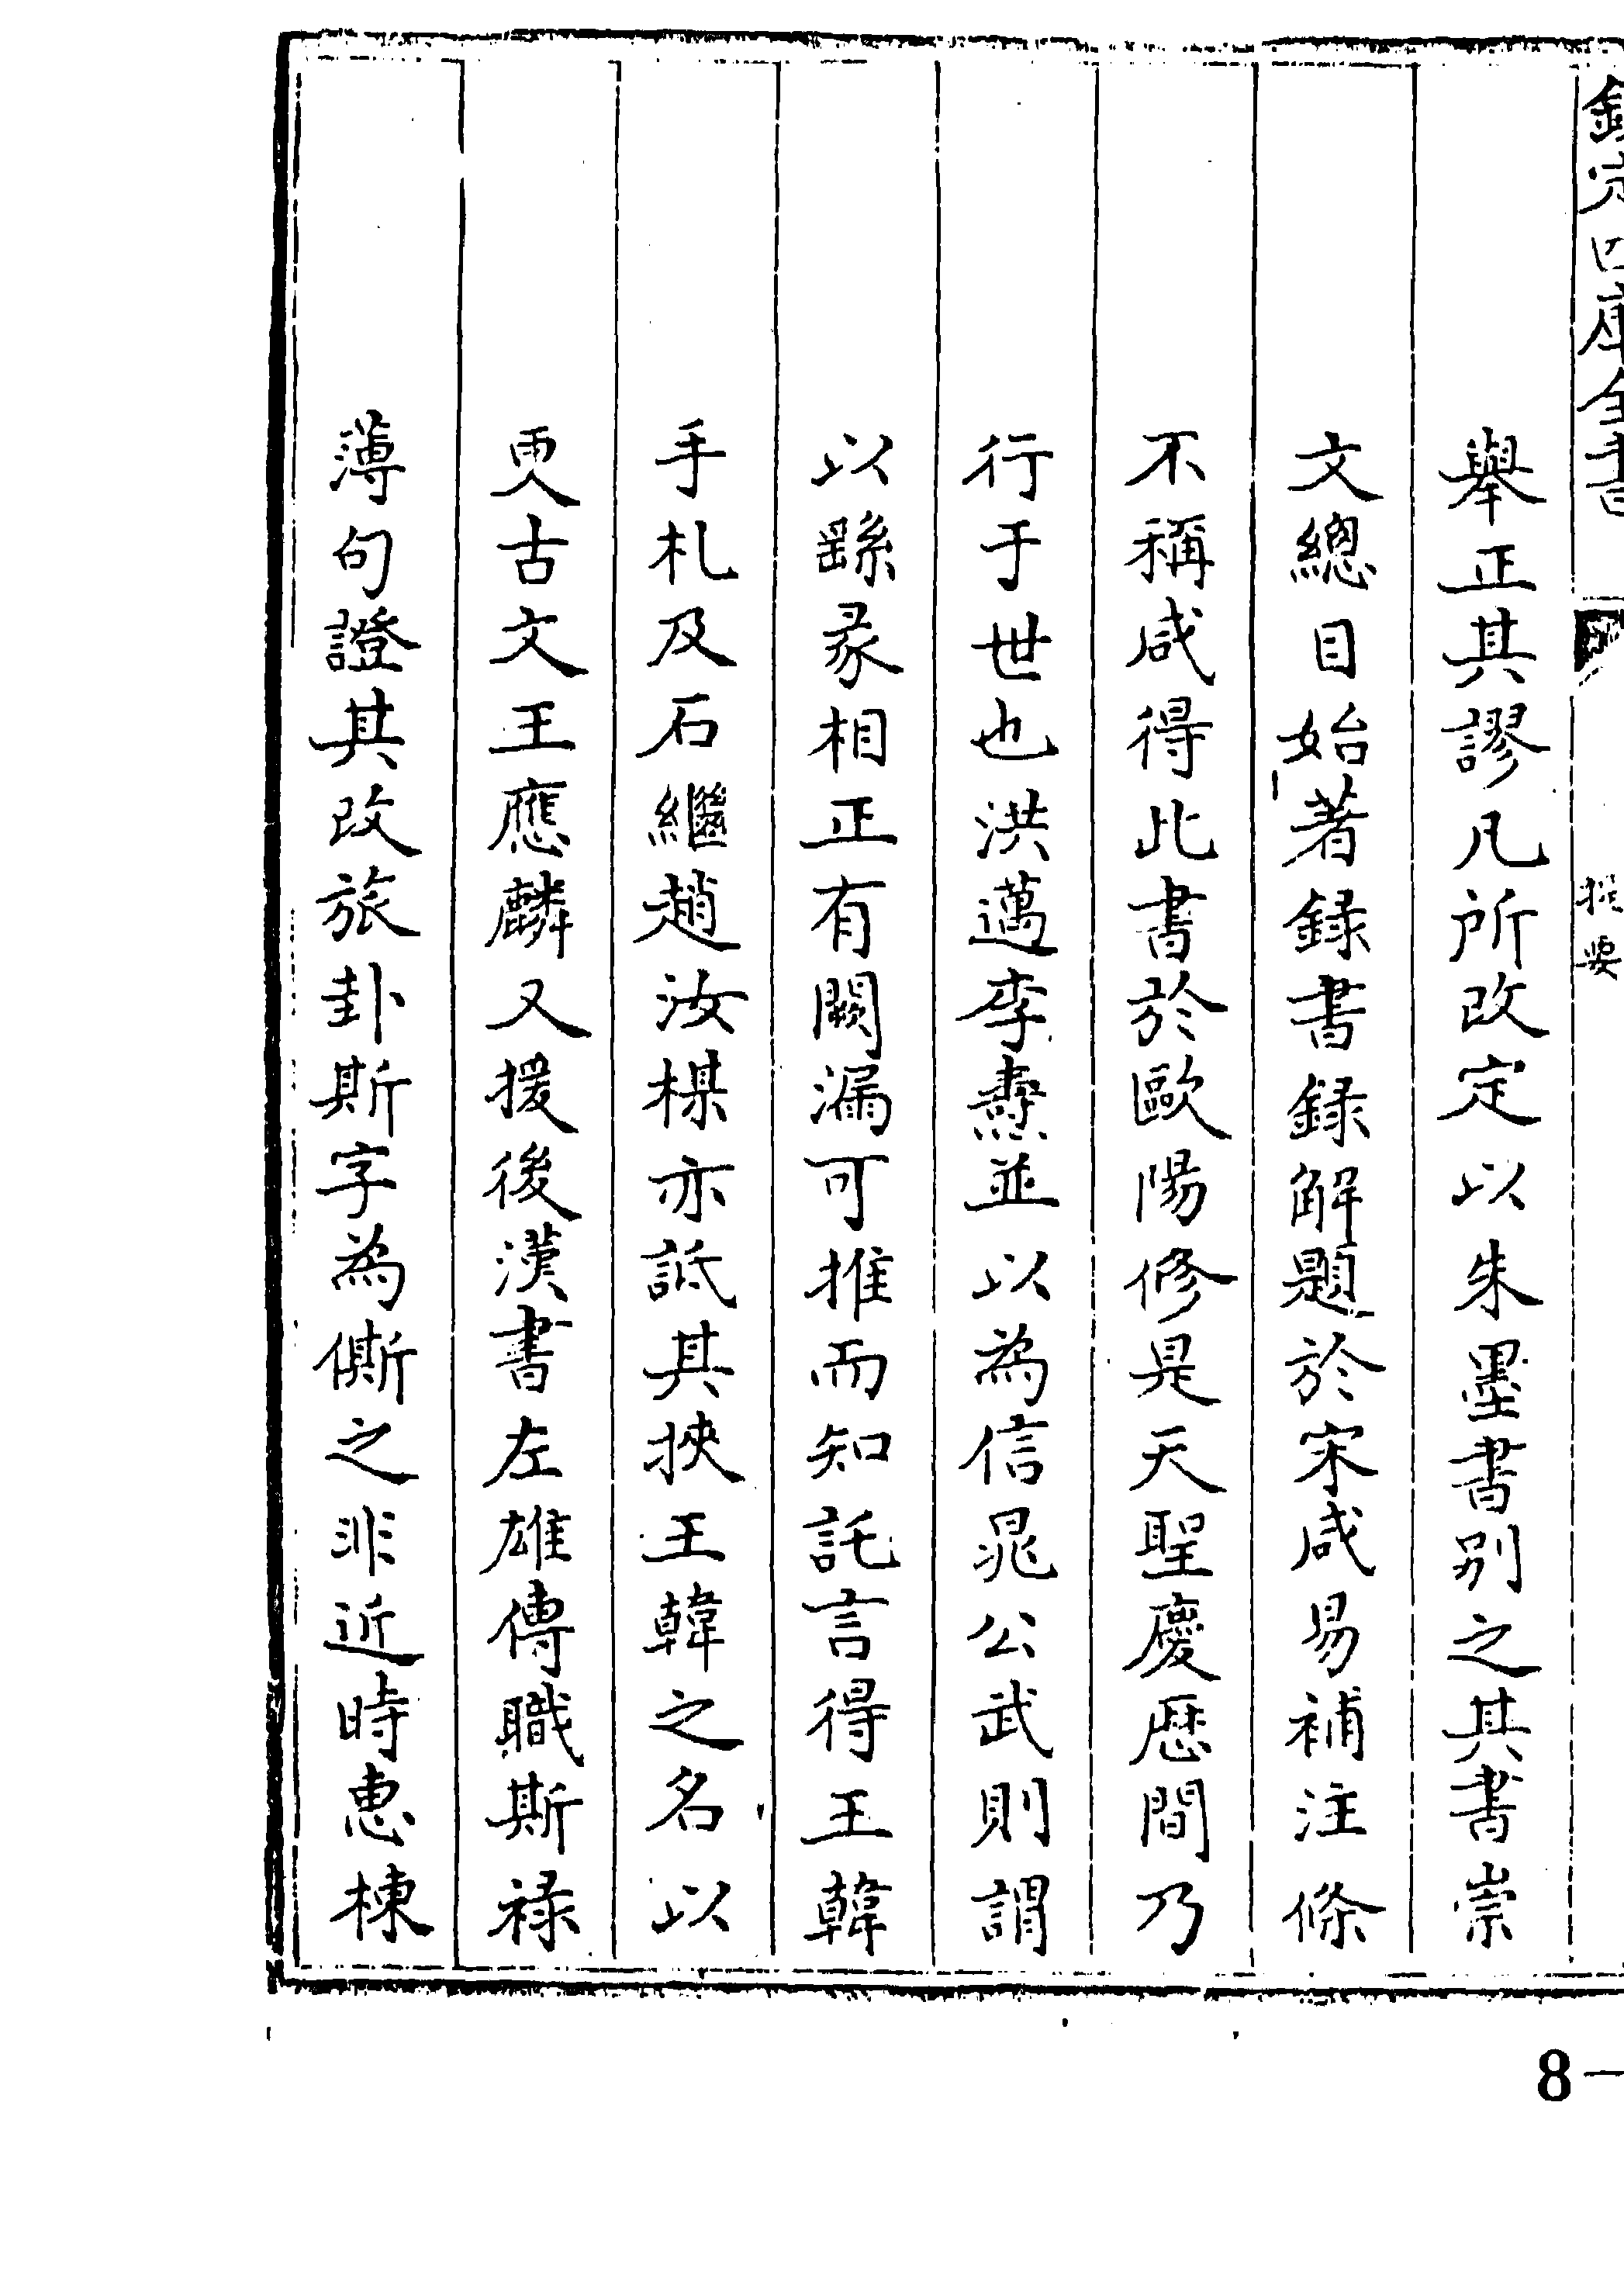 欽定四庫全書
提要
舉正其謬凡所改定以朱墨書别之其書崇
文總目始著録書録解題於宋咸易補注條
不稱咸得此書於歐陽修是天聖慶歷間乃
行于世也洪邁李燾並以為信晁公武則謂
以繇彖相正有闕漏可推而知託言得王韓
手札及石繼趙汝楳亦詆其挾王韓之名以
更古文王應麟又援後漢書左雄傳職斯禄
薄句證其改旅卦斯字為㒋之非近時惠棟
8